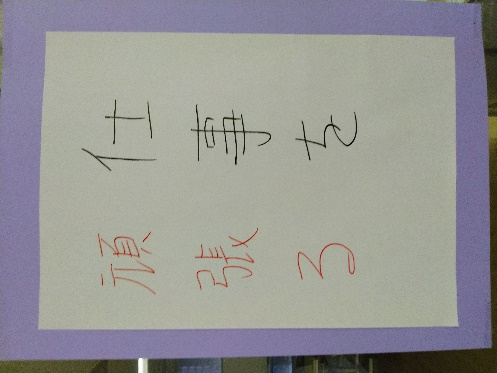 仕事を
頑張る